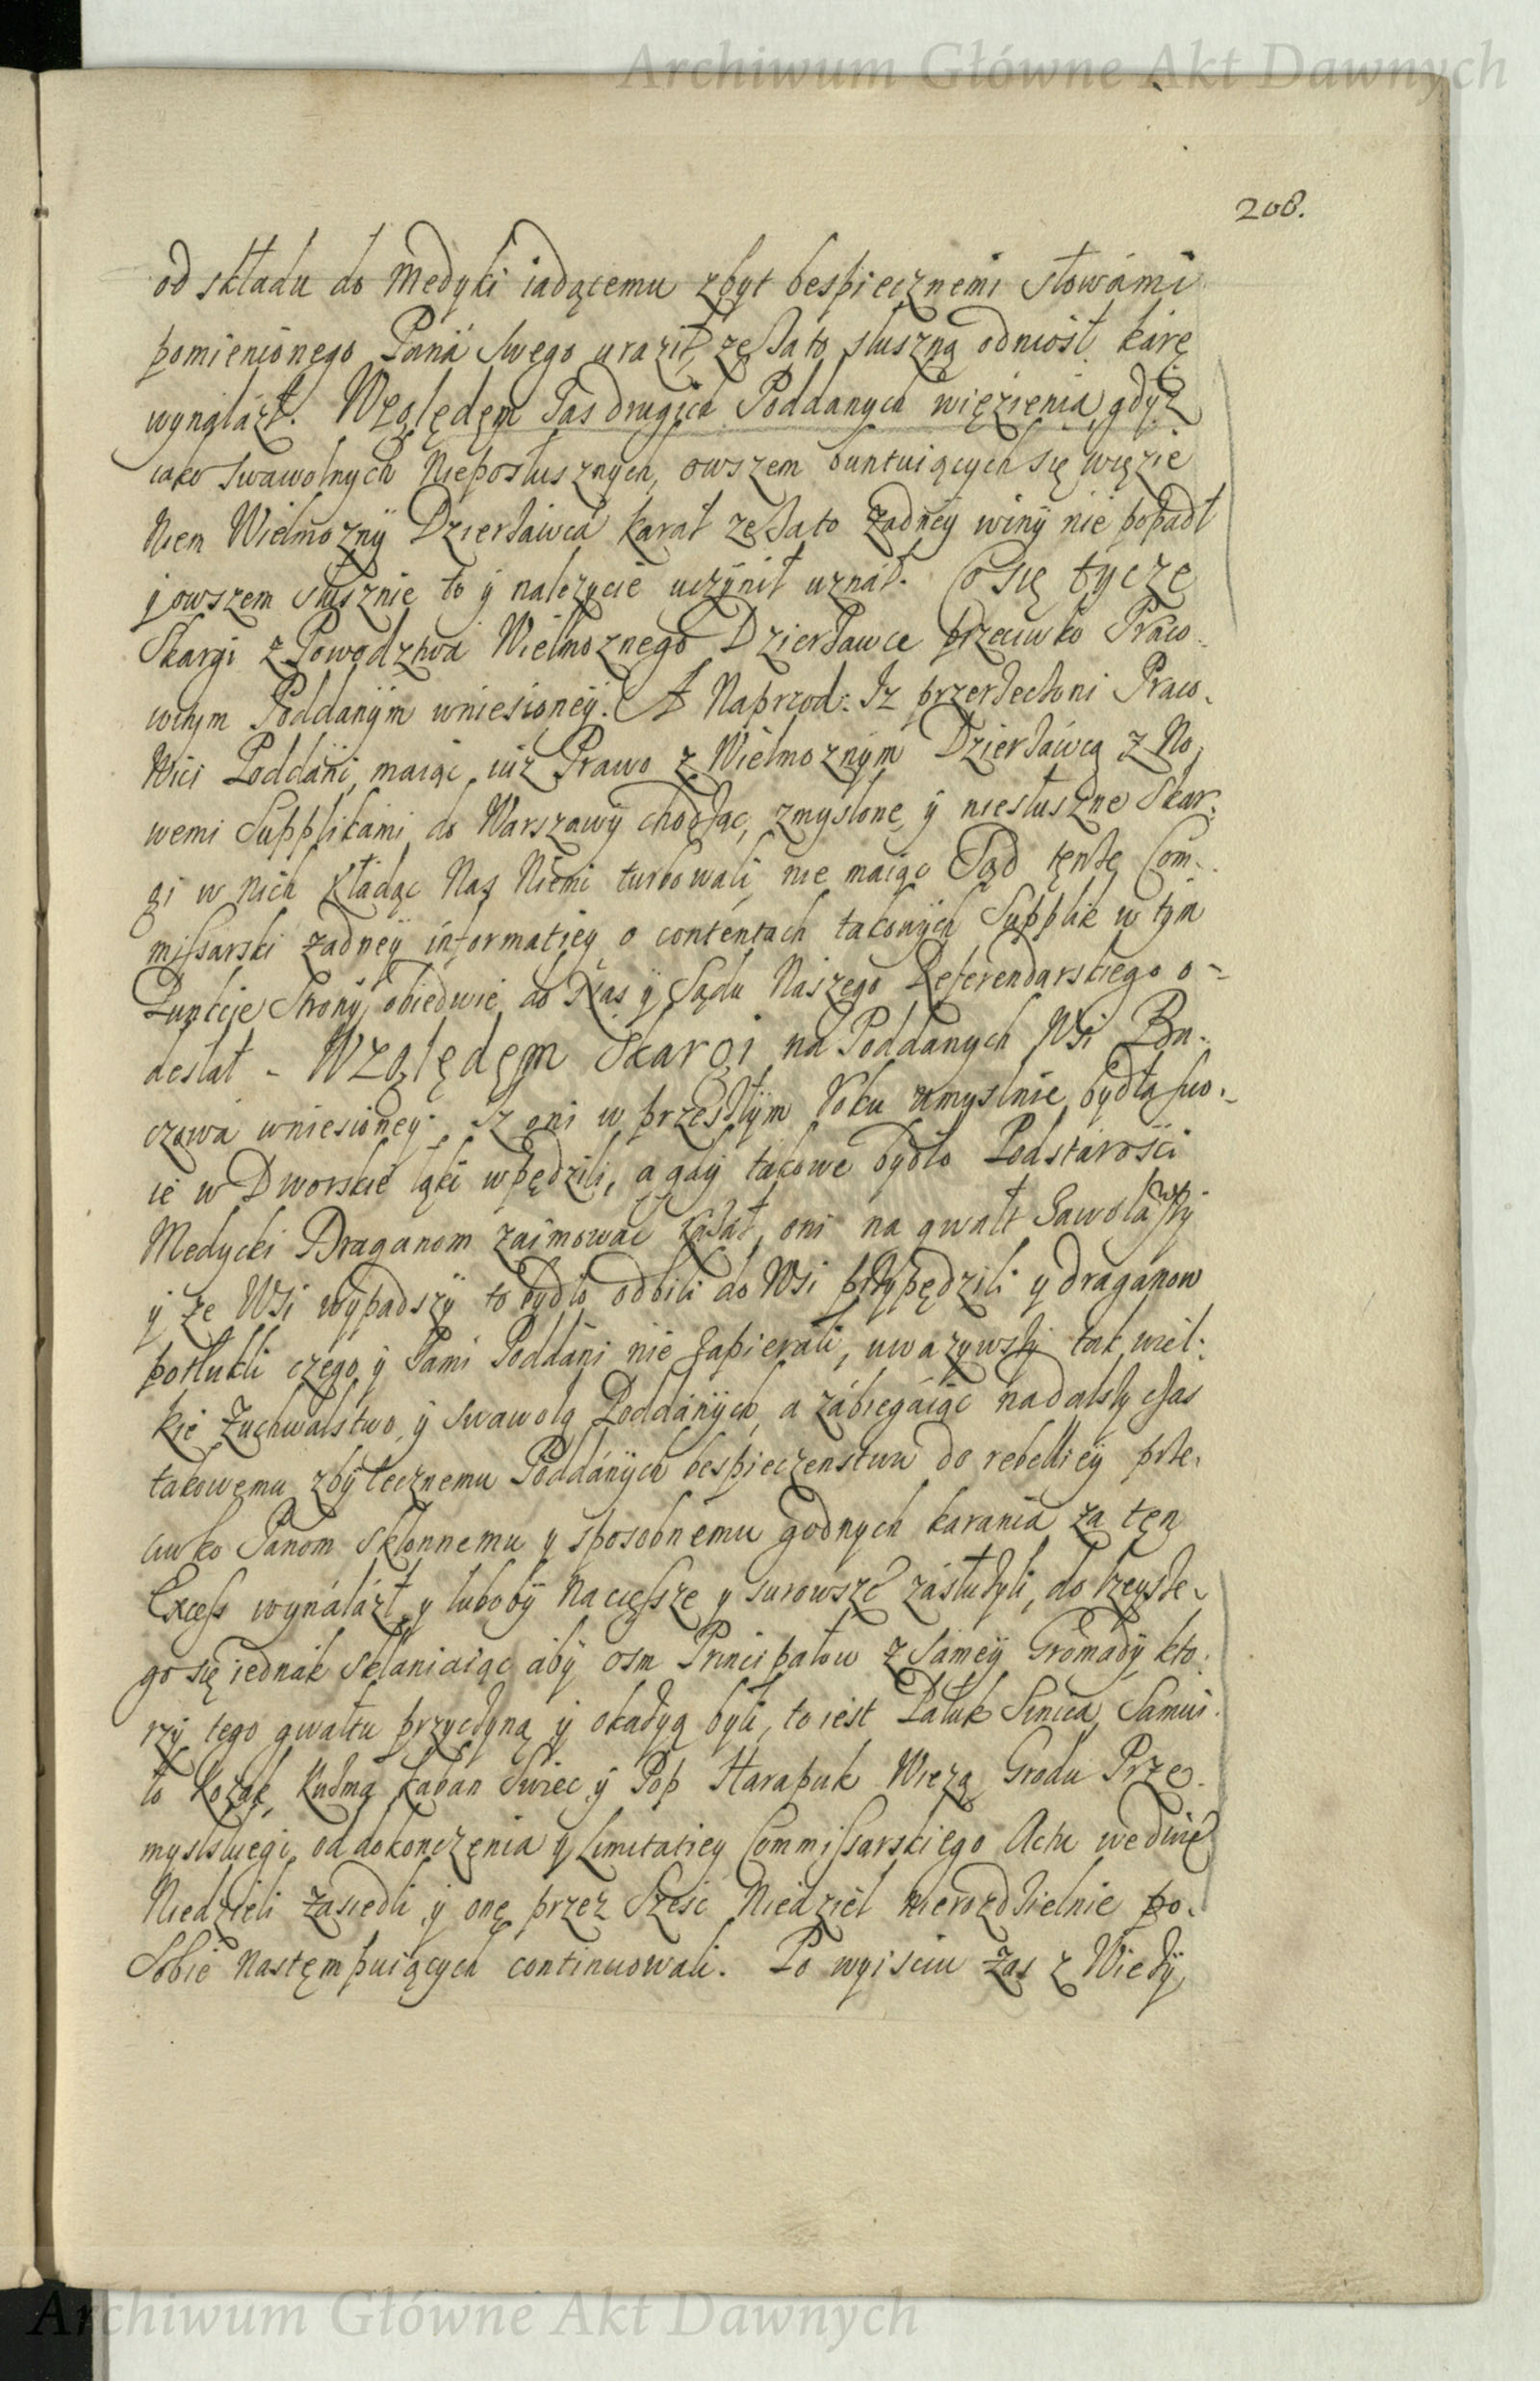 Archiwum Główne Akt Dawnych
208.
od składu do Medyki iadącemu zbyt bespiecznemi słowámi
pomienionego Pana swego uraził, że za to słuszną odniosł karę
wynalazł. Względem zas drugich Poddanych więzienia, gdyż
iako swawolnych Nieposłusznych, owszem buntuiących się więzie
niem Wielmozny Dzierżawca karał że za to żadney winy nie popadł
y owszem słusznie to y nalezycie uczynił uznał. Co się tycze
Skargi z Powodztwa Wielmoznego Dzierżawce przeciwko Praco-
witym Poddanym wniesioney. A Naprzod: Iz przerzeczoni Praco-
wici Poddani, maiąc iuż Prawo z Wielmoznym Dzierżawcą z No-
wemi Supplikami do Warszawy chodząc, zmyslone y niesłuszne Skar-
gi w nich kładąc Nas Niemi turbowali, nie maiąc Sąd tenże Com-
missarski żadney informatiey o contentach takowych Supplik w tym
Punkcie Strony obiedwie do Nas y Sądu Naszego Referendarskiego o-
desłał - Względem Skargi na Poddanych Wsi Bu-
cowa wniesioney. Iz oni w przeszłym Roku umyslnie bydła swo-
ie w Dworskie łąki wpędzili, a gdy takowe bydło Podstarosci
Medycki Draganom zaimowac kazał, oni na gwałt zawoławszy
y ze Wsi wypadszy to bydło odbili do Wsi przypędzili y draganow
potłukli czego y sami Poddani nie zapierali, uwazywszy tak wiel-
kie Zuchwalstwo y swawolą Poddanych, a zabiegaiąc nadalszy czas
takowemu zbytecznemu Poddanych bespieczenstwu do rebelliey prze-
ciwko Panom skłonnemu y sposobnemu godnych karania za ten
Excess wynalazł, y luboby na cięższe y surowsze zasłużyli, do lzeysze-
go się iednak skłaniaiąc aby osm Principałow z samey Gromady, kto-
rzy tego gwałtu przyczyną y okazyą byli, to iest
Kozak, Kuzma y Pop Harapuk Wiezą Grodu Prze-
myslskiego od dokonczenia y Limitatiey Commissarskiego Actu we dwie
Niedzieli zasiedli y onę przez Szesc Niedziel nierozdzielnie po
Sobie następuiących continuowali. Po wyisciu zas z Wiezy
Archiwum Główne Akt Dawnych